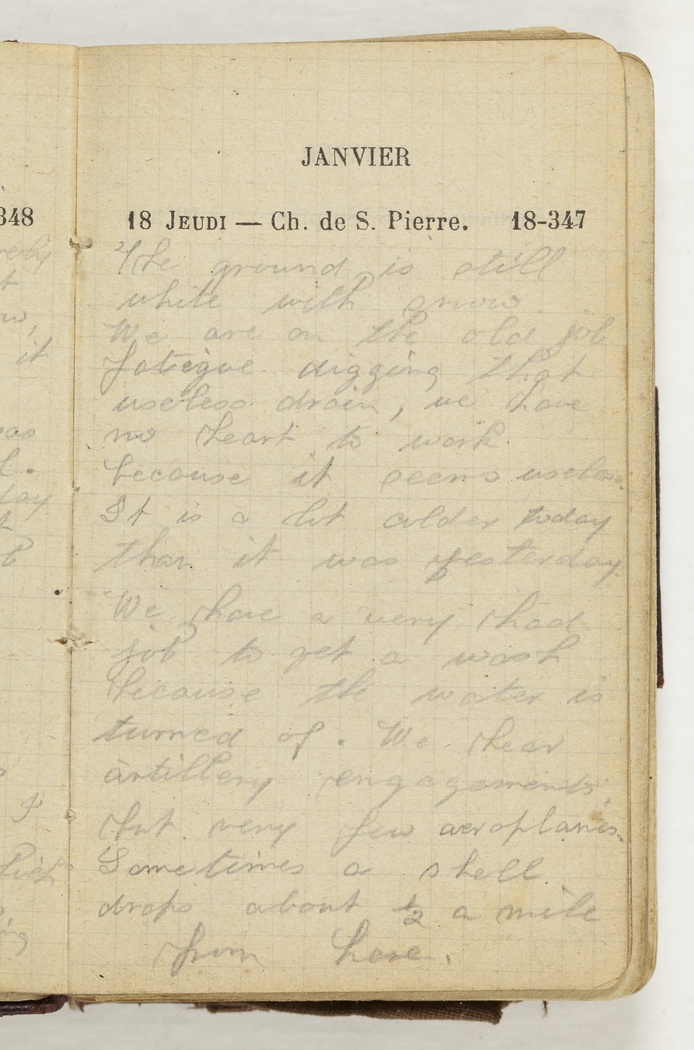 JANVIER
18 JEUDI — Ch. de S. Pierre. 18-347
The ground is still
white with snow.
We are on the old job
fatigue digging that
useless drain, we have
no heart to work
because it seems useless.
It is a lot colder today
than it was yesterday.
We have a very hard
job to get a wash
because the water is
turned of. We hear
artillery engagements,
but very few aeroplanes.
Sometimes a shell
drops about ½ a mile
from here.
348
it
day
I